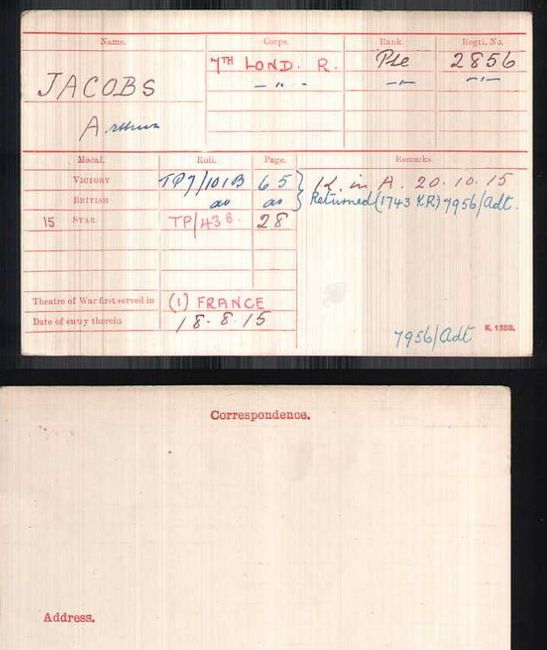 Name. Corps. Rank. Regtl. No.
JACOBS 7TH LOND. R. Pte 2856
Arthur — " — — " — — " —
Medal. Roll. Page. Remarks.
VICTORY TP7/101B 65 } K. in A. 20.10.15
BRITISH do do } Returned (1743 KR) 7956/Adt.
15 STAR TP/43B. 28
Theatre of War first served in (1) FRANCE
Date of entry therein 18.8.15
7956/Adt K. 1380.
Correspondence.
Address.